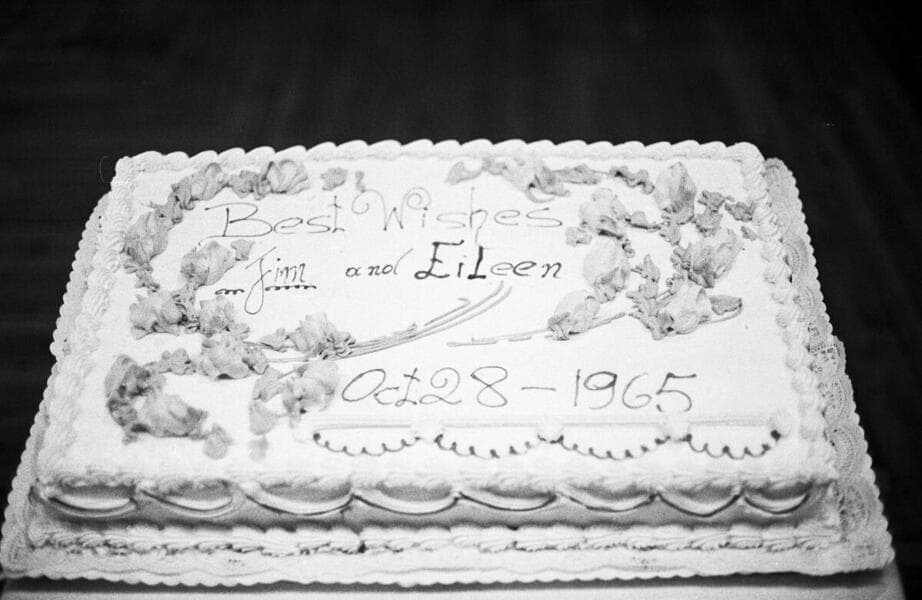 Best Wishes
Jim and EiLeen
Oct 28 - 1965